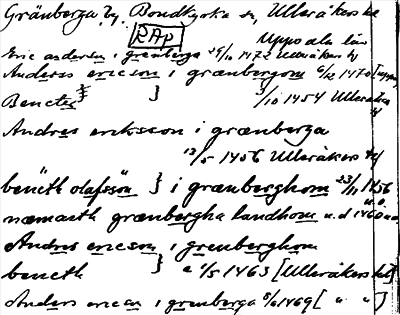 Gränberga by, Bondkyrka sn, Ulleråkers hd
RAP Uppsala län
Eric andersen i grenberga 29/11 1472 Ulleråkers tg
Anders ericson i grænbergom 9/12 1470 [
Benct 3/10 1454 Ulleråkers
Andres eriksson i grænberga
13/5 1456 Ulleråkers tg
benēth olafssön } i grænberghom 23/11 1456
næmaeth grænbergha landhom u.d 1460
Andres ericson i grenberghom
beneth } e 2/5 1463 [Ulleråkers hd]
Anders ericson i grenberga 8/6 1469 [ " " ]